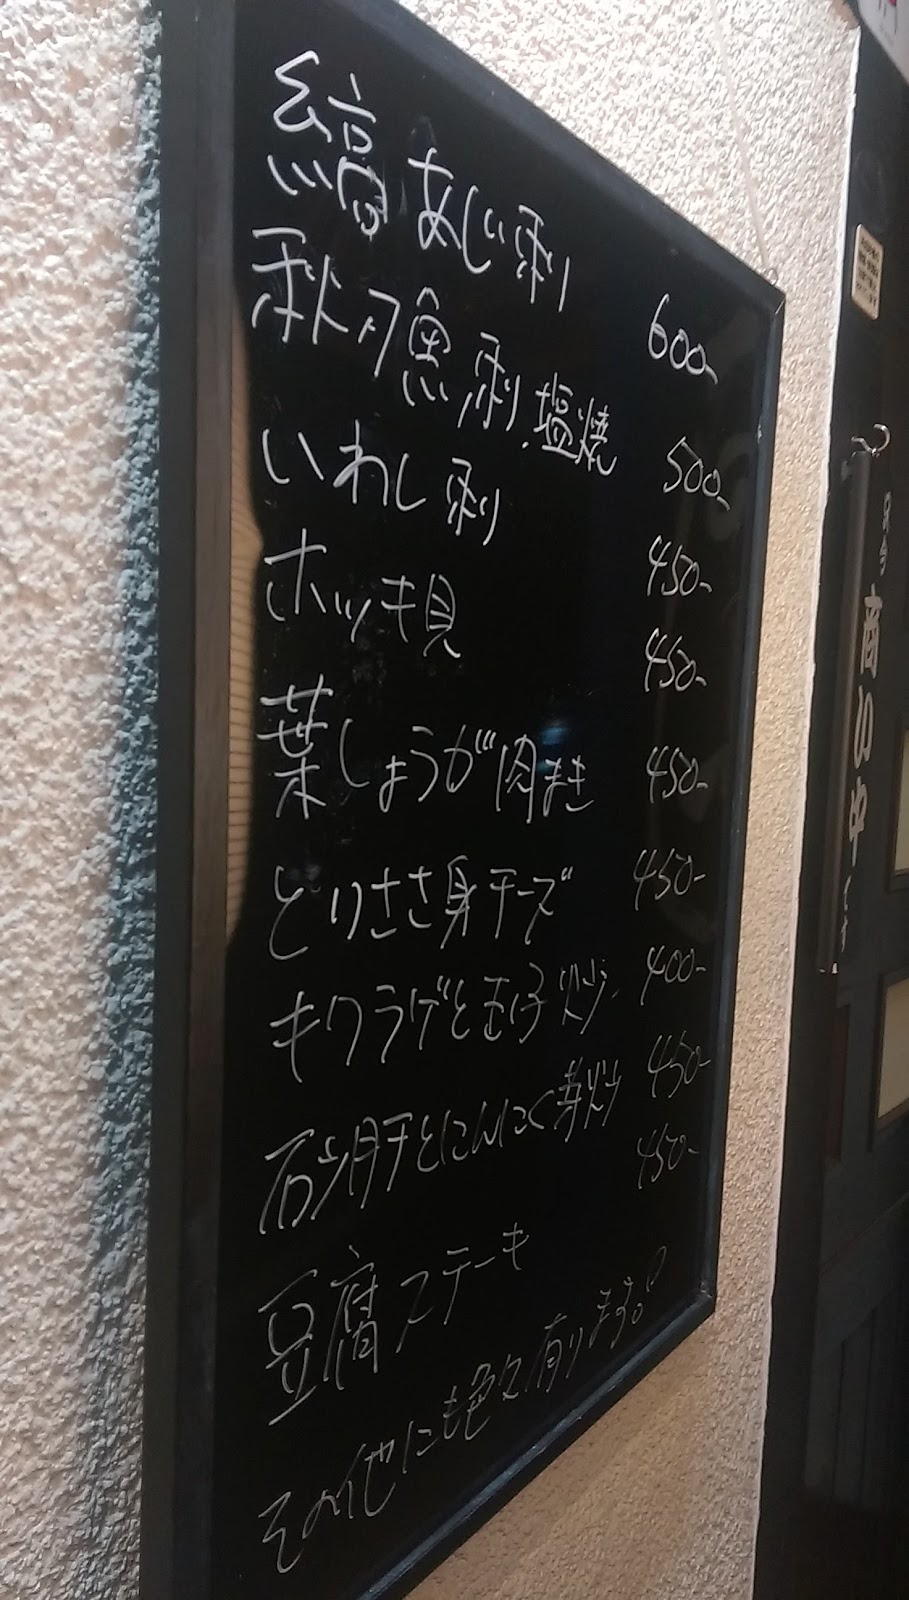 縞あじ刺 600-
秋刀魚刺、塩焼 500-
いわし刺 450-
ホッキ貝 450-
葉しょうが肉まき 450-
とりささ身チーズ 450-
キクラゲと玉子炒 400-
砂肝とにんにく芽炒 450-
豆腐ステーキ 450-
その他にも色々有ります。